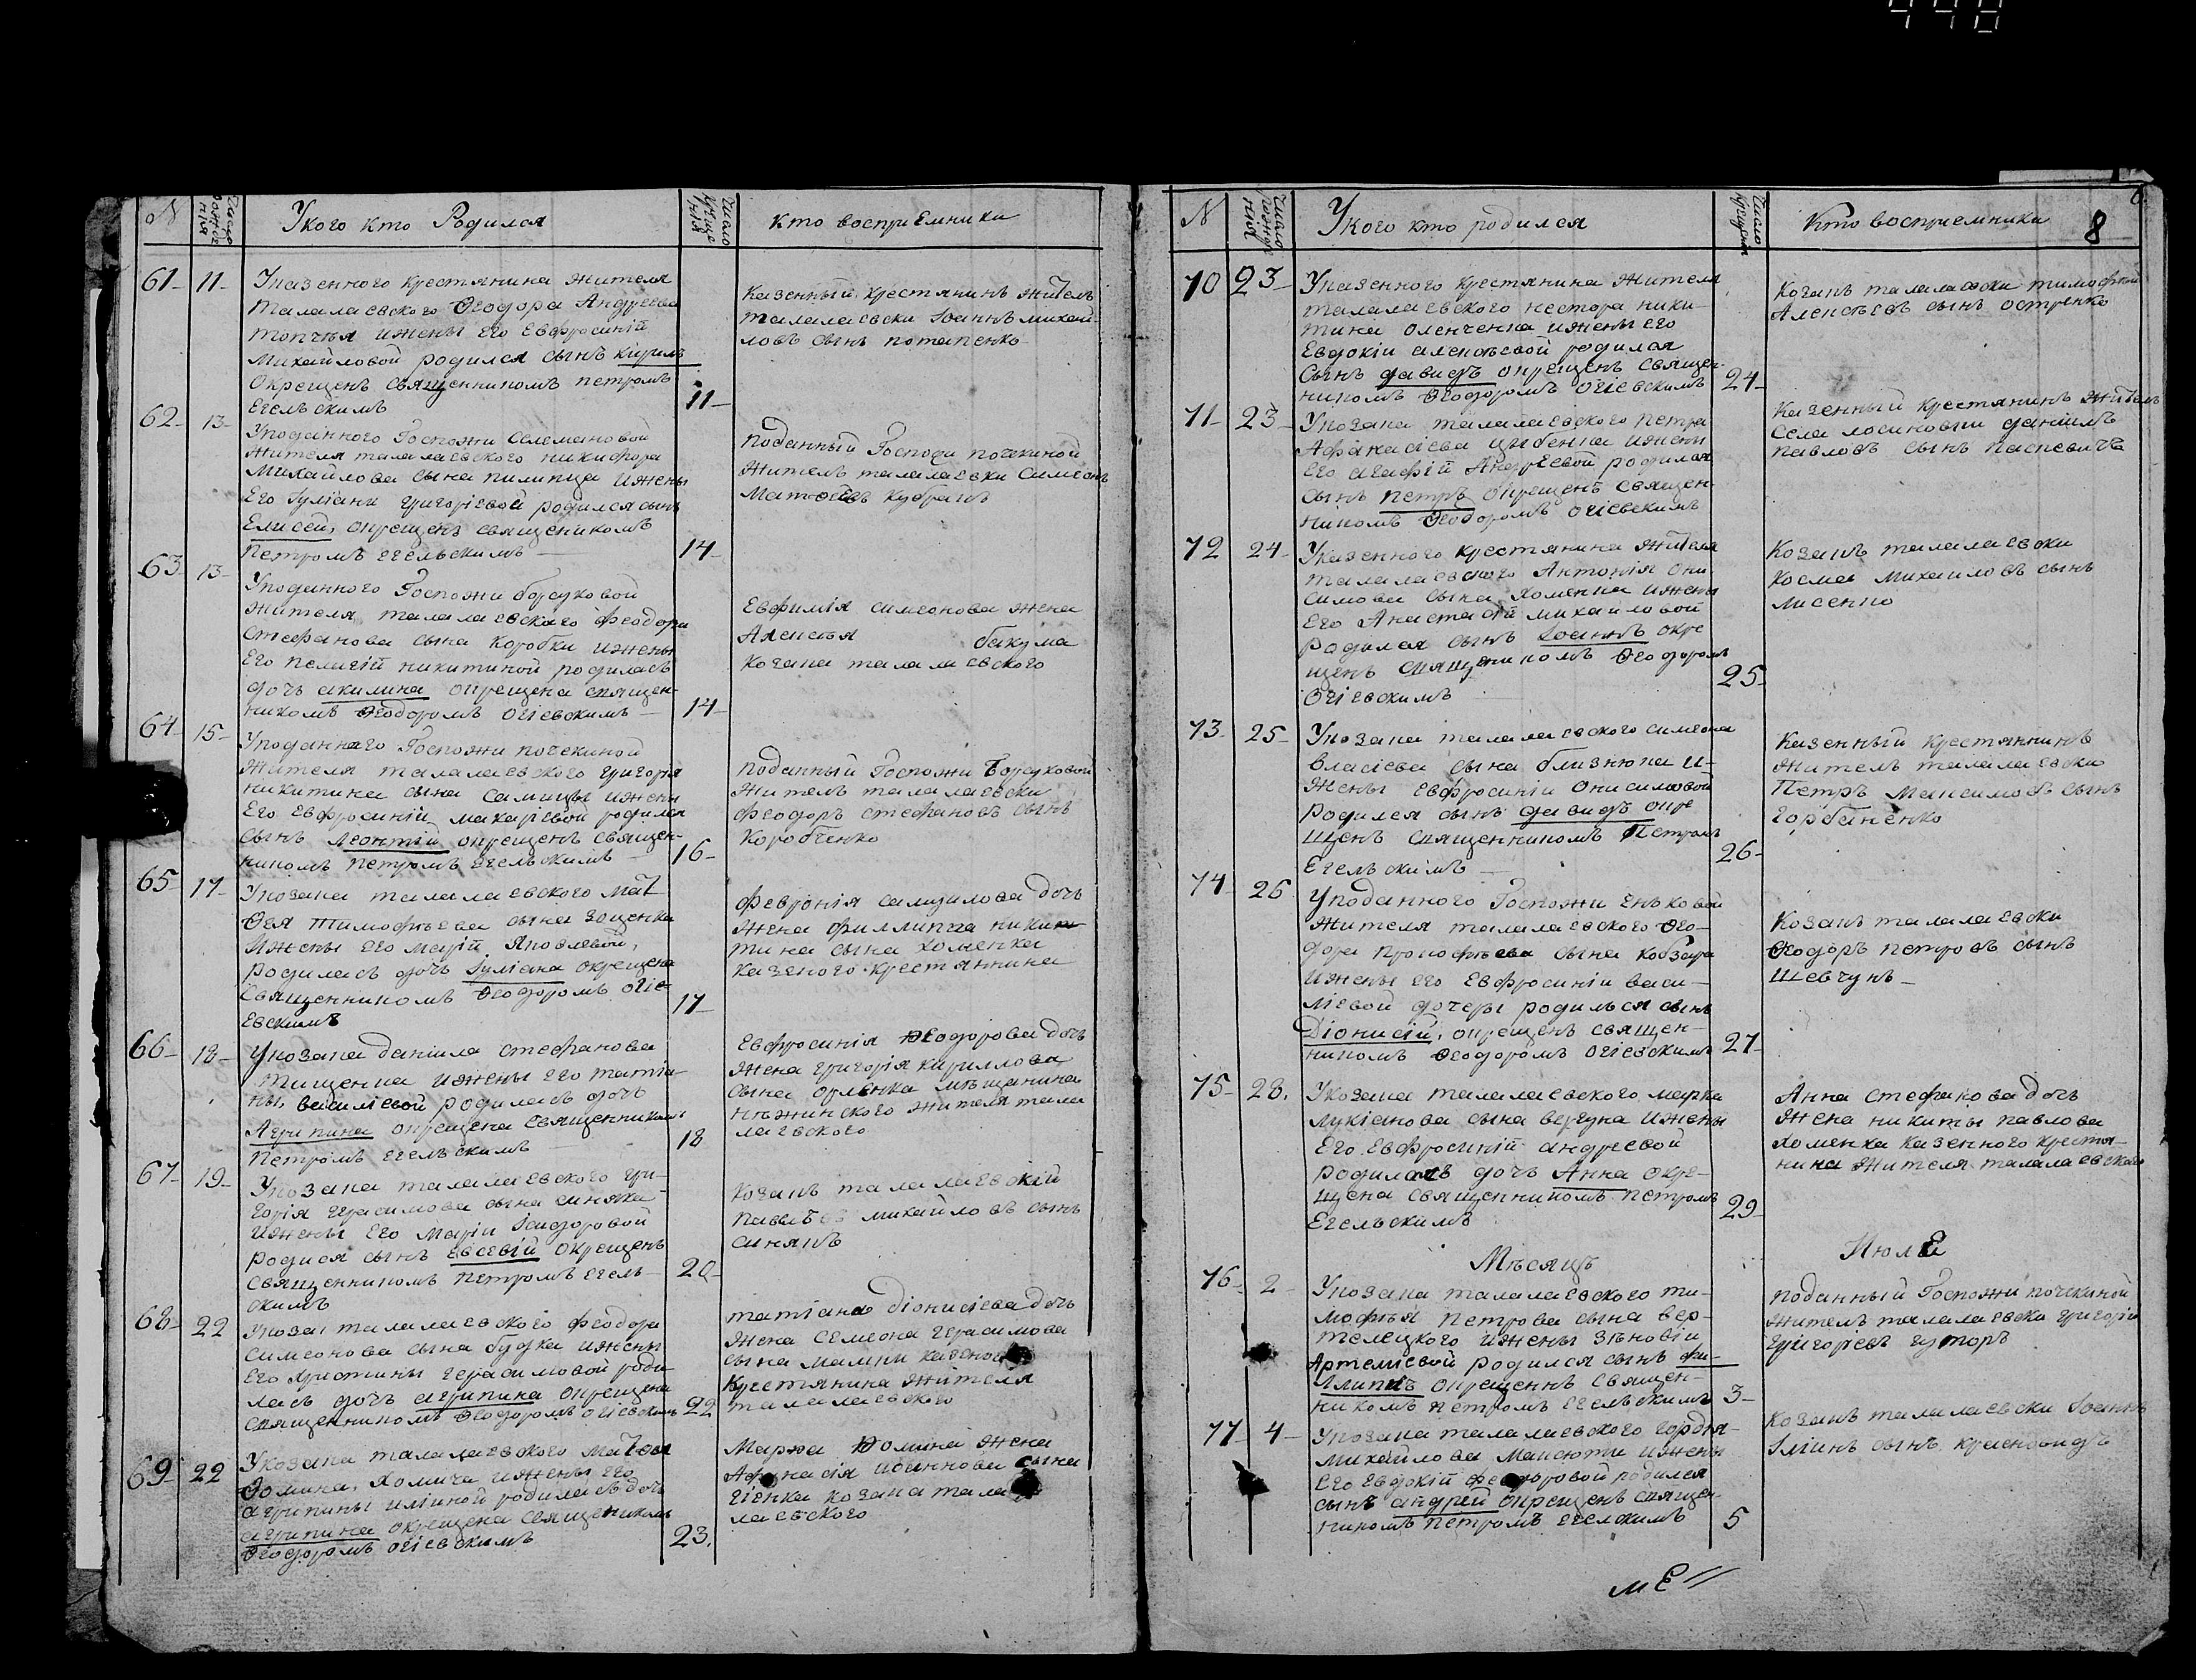 448
N
Число рожденія
У кого кто Родился
Число крещенія
кто восприемники
61 11
Указенного крестянина жителя
талалаевского Ѳеодора Андреева
топчѣя ижены его Евфросиній
Михайловой родился сынъ кирилъ
окрещенъ священникомъ петромъ
Егельскимъ
11
казенный крестянинъ житель
талалаевски Іоаннъ михай-
ловъ сынъ потапенко
62 13
Уподанного Госпожи Селемановой
жителя талалаевского никифора
Михайлова сына пилипца ижены
Его Іуліани григоріевой родился сынъ
Елисей, окрещенъ священикомъ
Петромъ егельскимъ
14
поданный Госпожи почекиной
житель талалаевски Симеонъ
Матѳеевъ кудранъ
63 13
Уподанного Госпожи борсуковой
жителя талалаевского феодора
стефанова сына коробки ижены
Его пелагій никитиной родилась
дочь акилина окрещена священ-
никомъ Ѳеодоромъ огіевскимъ
14
Евфимія симеонова жена
Алексѣя бакума
козака талалаевского
64 15
Уподанного Госпожи почекиной
жителя талалаевского григорія
никитина сына самицы ижены
Его Евфросиній макаріевой родился
сынъ Леонтій окрещенъ священ-
никомъ петромъ егельскимъ
16
поданный Госпожи Борсуковой
житель талалаевски
феодоръ стефановъ сынъ
коробченко
65 17
Укозака талалаевского мат-
ѳея тимофѣева сына зощенка
ижены его марій яковлевой,
родилась дочь Іуліана окрещена
Священникомъ Ѳеодоромъ огіе-
евскимъ
17
февронія самуилова дочь
жена филиппа ники
тина сына хоменка
казеного крестянина
66 18
Укозака даніила стефанова
тищенка ижены его татіа-
ны, василіевой родилась дочь
Агрипина окрещена Священникомъ
Петромъ егельскимъ
18
Евфросинія Ѳеодорова дочь
жена григорія кириллова
сына орленка мѣщанина
нѣжинского жителя тала
лаевского
67 19
Укозака талалаевского гри-
горія герасимова сына синяка
ижены его маріи Ісидоровой
родися сынъ Евсевій окрещенъ
Священникомъ петромъ егель-
скимъ
20
козакъ талалаевскій
павелъ михайловъ сынъ
синякъ
68 22
Укозак талалаевского феодора
симеонова сына будка ижены
его христины герасимовой роди
лась дочь агрипина окрещена
священникомъ Ѳеодоромъ огіевскимъ
22
татіана діонисіева дочь
жена семеона герасимова
сына мамки казеного
крестянина жителя
талалаевского
69 22
Укозака талалаевского матѳея
Ѳомина, хомича ижены его
агрипины иліиной родилась дочь
агрипина окрещена священикомъ
Ѳеодоромъ огіевскимъ
23.
Марѳа Ѳомина жена
Афанасія иоаннова сына
гіенка козака тала
лаевского
N
Число рожденія
У кого кто родился
Число крещенія
Кто восприемники
8
70 23
Указенного крестянина жителя
талалаевского нестора ники-
тина оленченка ижены его
Евдокіи алексѣевой родился
Сынъ давидъ окрещенъ священ-
никомъ Ѳеодоромъ огіевскимъ
24
козакъ талалаевски тимофѣй
Алексѣевъ сынъ остренко
71 23
Укозака талалаевского петра
Афанасіева цыбенка ижены
Его агафій Андреевой родился
сынъ петръ окрещенъ священ-
никомъ Ѳеодоромъ огіевскимъ
Казенный крестянинъ житель
села лосиновки даніилъ
павловъ сынъ паскевичъ
72 24
Указенного крестянина жителя
талалаевского Антонія они
симова сына хоменка ижены
Его Анастасій михайловой
родился сынъ Іоаннъ окре
щенъ священикомъ Ѳеодоромъ
Огіевскимъ
25
Козакъ талалаевски
косма михаиловъ сынъ
лисенко
73 25
Укозака талалаевского симеона
власіева сына близнюка и-
жены Евфросиній Онисимовой
родился сынъ давидъ окре
щенъ священникомъ Петромъ
Егельскимъ
26
Казенный крестянинъ
житель талалаевски
Петръ Максимовъ сынъ
Горбаненко
74 26
Уподанного Госпожи еньковой
жителя талалаевского Ѳео-
дора прокофѣева сына кобзара
ижены его Евфросиніи васи-
ліевой дочеры родилься сынъ
Діонисій, окрещенъ священ-
никомъ Ѳеодоромъ огіевскимъ
27
Козакъ талалаевски
Ѳеодоръ петровъ сынъ
Шевчукъ
75 28.
Укозака талалаевского марка
лукіанова сына вергуна ижены
Его Евфросиній андреевой
родилась дочь Анна окре-
щена священникомъ петромъ
Егельскимъ
29
Анна стефанова дочь
жена никиты павлова
хоменка казенного крестя-
нина жителя талалаевского
Мѣсяцъ Июль
76 2
Укозака талалаевского ти-
мофѣя петрова сына вер-
телецкого ижены зѣновіи
Артеміевой родился сынъ фи-
ллипъ окрещенъ священ-
никомъ петромъ егельскимъ
3
поданный Госпожи почекиной
житель талалаевски григорій
григоріевъ гуторъ
77 4
Укозака талалаевского гордѣя
михайлова манюти ижены
Его Евдокій феодоровой родился
сынъ андрей окрещенъ священ-
никомъ петромъ егельскимъ
5
козакъ талалаевски Іоаннъ
Іліинъ сынъ красновидъ
ме